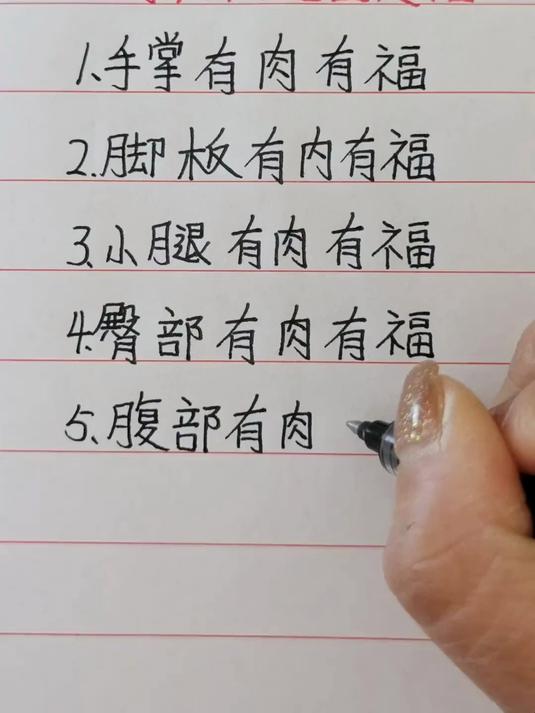 1.手掌有肉有福
2.脚板有内有福
3.小腿有肉有福
4.臀部有肉有福
5.腹部有肉